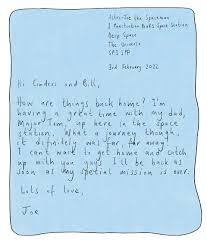 Astro-Joe the Spaceman
1 Punctuation Marks Space Station
Deep Space
The Universe
SP3 1PP
3rd February 2022
Hi Cinders and Bill,
How are things back home? I'm
having a great time with my dad,
Major Tom, up here in the space
station. What a journey though,
it definitely was far, far away!
I can't wait to get home and catch
up with you guys. I'll be back as
soon as my special mission is over.
Lots of love,
Joe